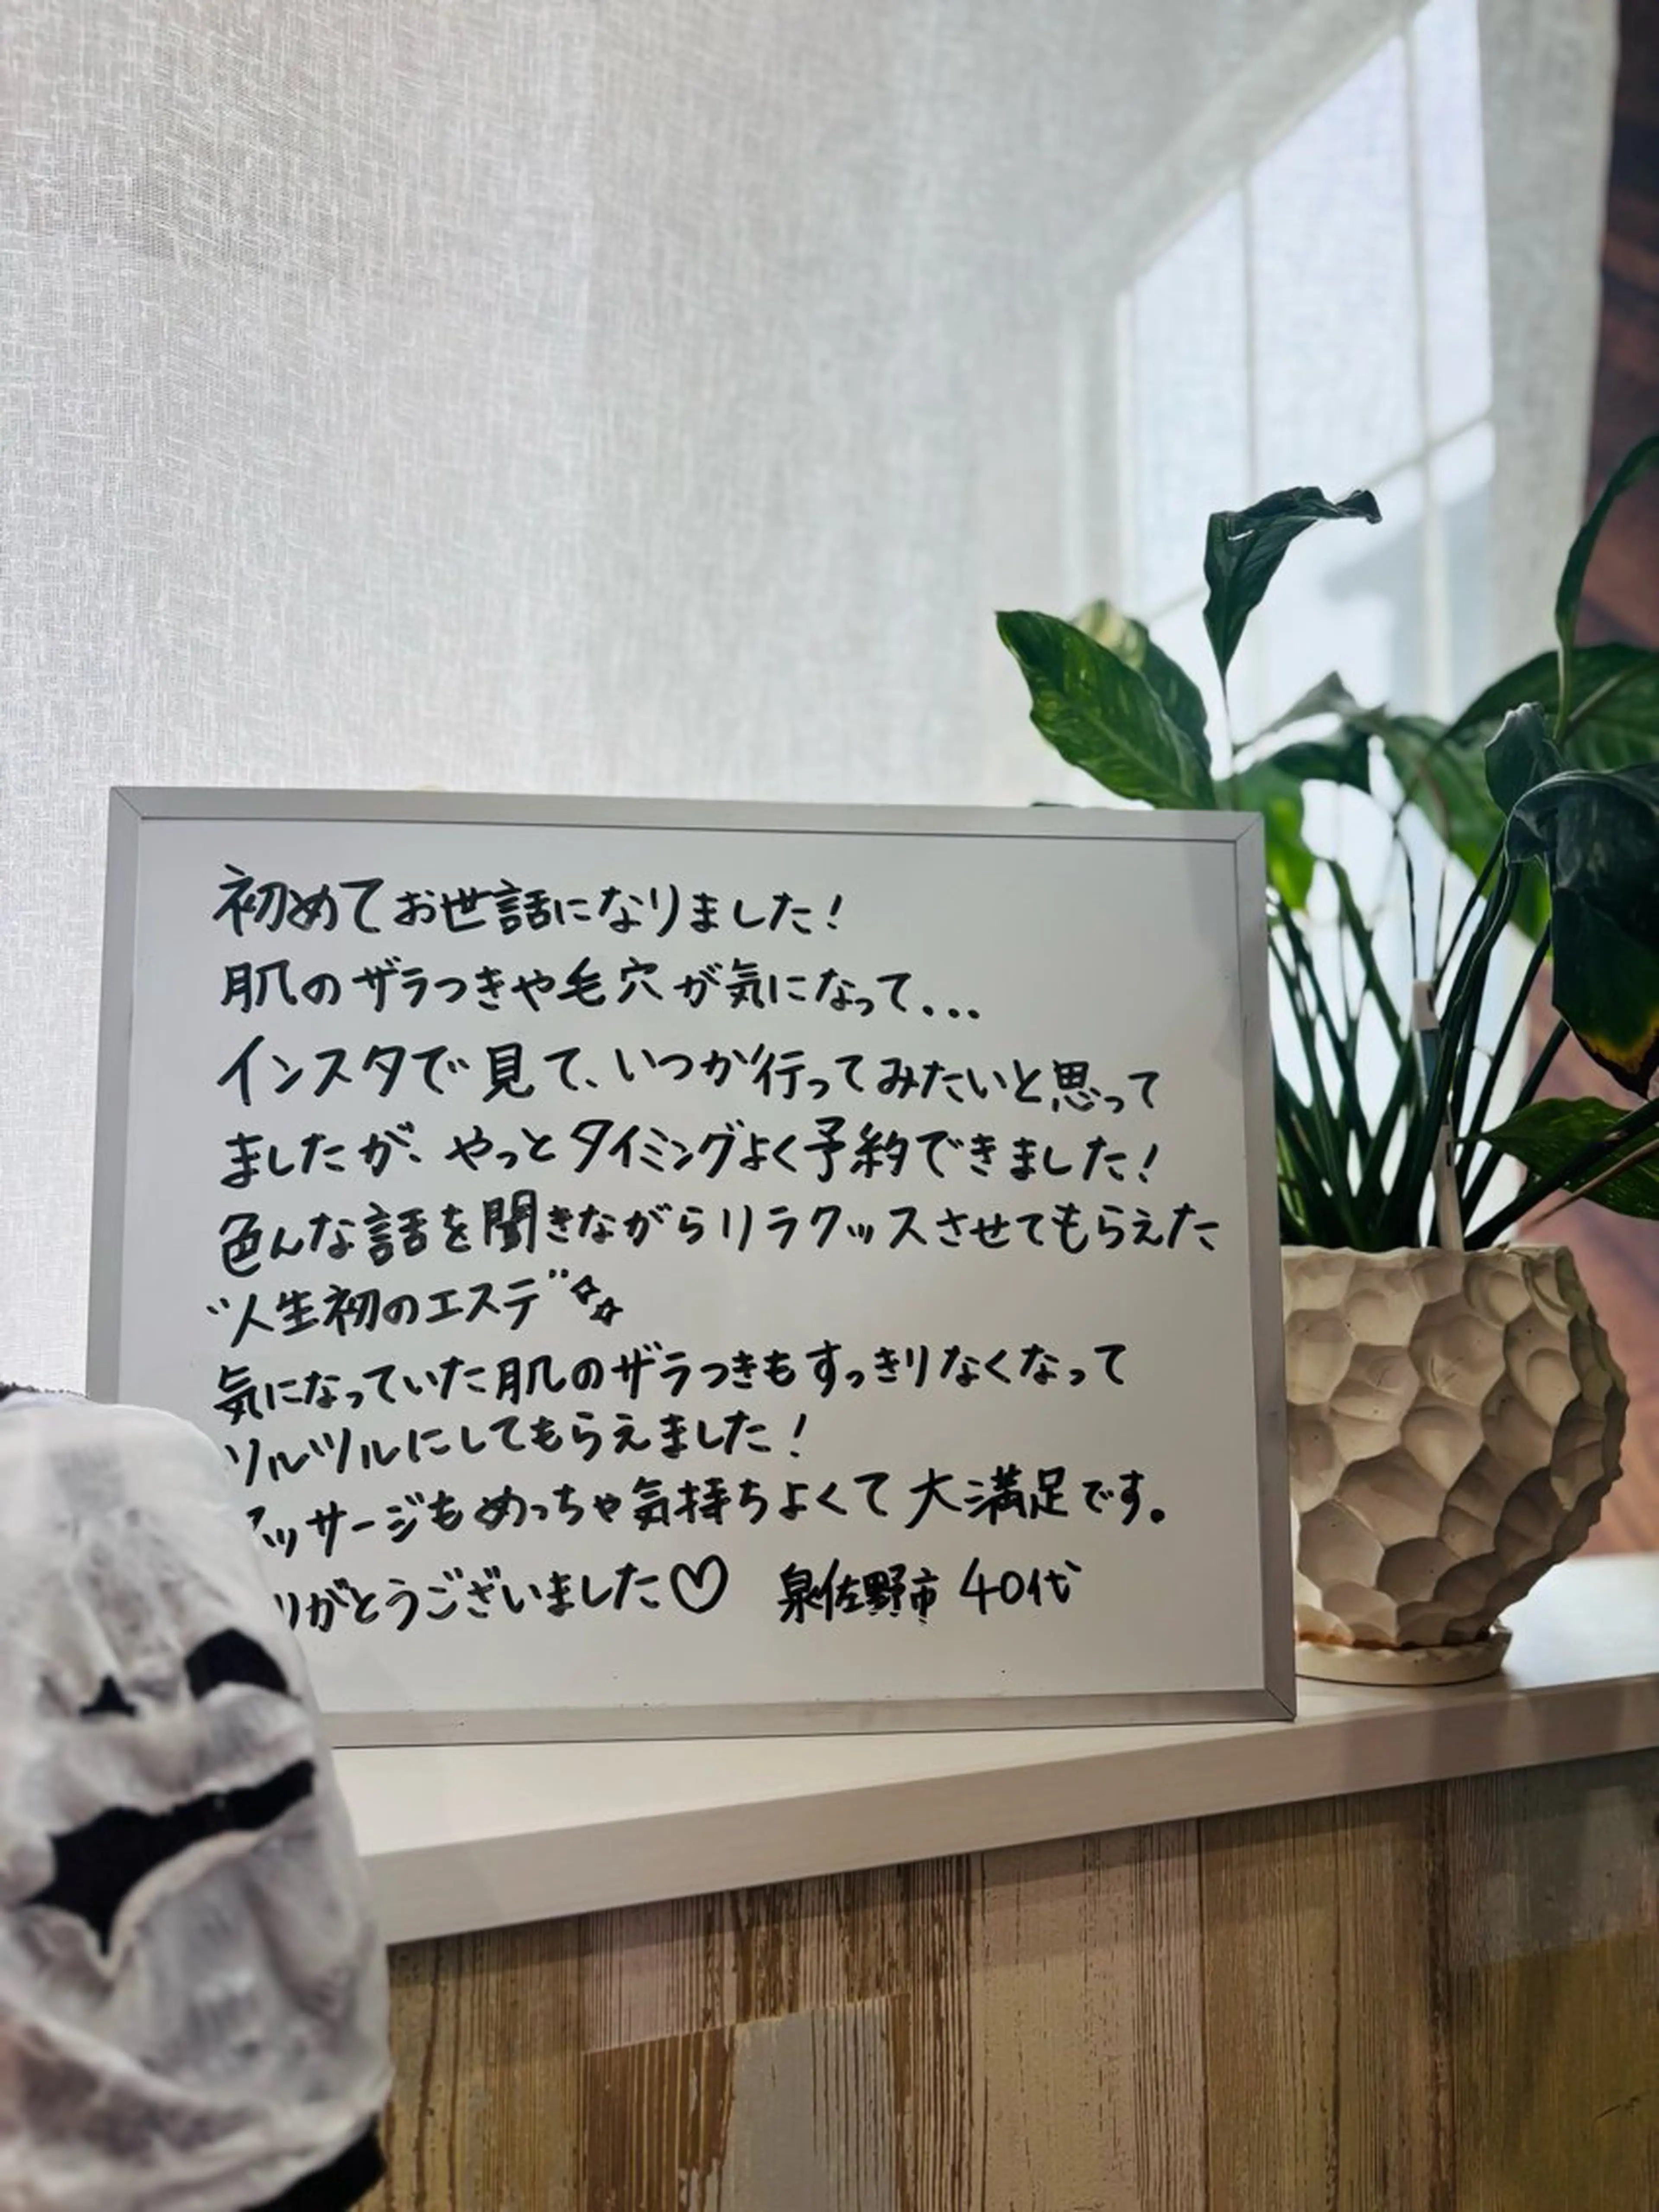 初めてお世話になりました!
肌のザラつきや毛穴が気になって...
インスタで見て、いつか行ってみたいと思って
ましたが、やっとタイミングよく予約できました!
色んな話を聞きながらリラックスさせてもらえた
"人生初のエステ"☆☆
気になっていた肌のザラつきもすっきりなくなって
ツルツルにしてもらえました!
マッサージもめっちゃ気持ちよくて大満足です。
りがとうございました♡ 泉佐野市 40代